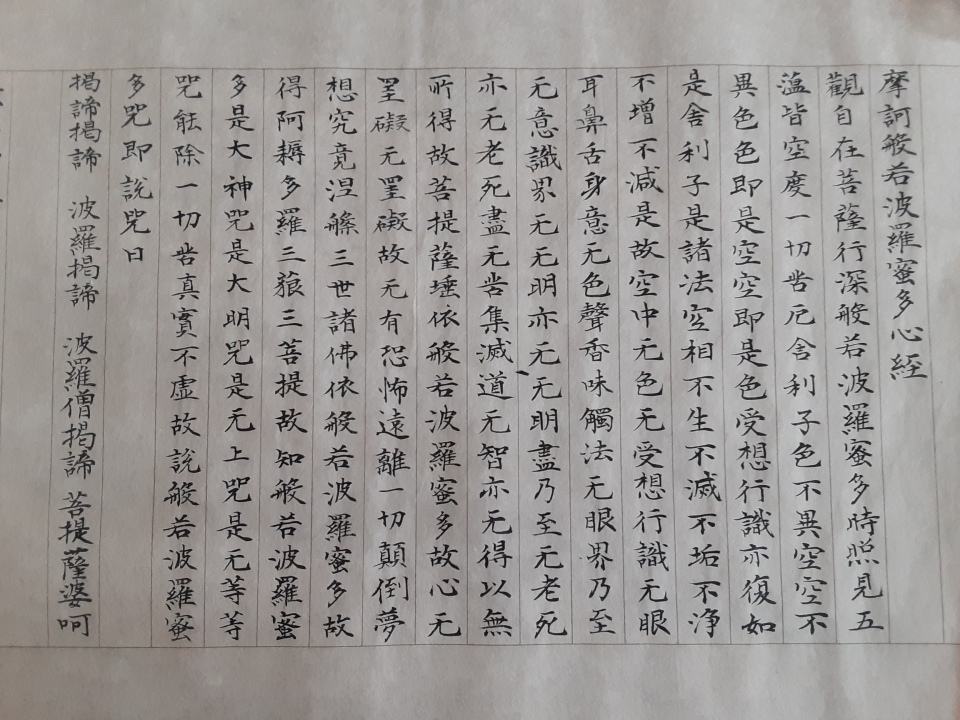 摩訶般若波羅蜜多心経
觀自在菩薩行深般若波羅蜜多時照見五
薀皆空度一切苦厄舍利子色不異空空不
異色色即是空空即是色受想行識亦復如
是舍利子是諸法空相不生不滅不垢不淨
不增不減是故空中无色无受想行識无眼
耳鼻舌身意无色聲香味觸法无眼界乃至
无意識界无无明亦无无明盡乃至无老死
亦无老死盡无苦集滅道无智亦无得以無
所得故菩提薩埵依般若波羅蜜多故心无
罣礙无罣礙故无有恐怖遠離一切顛倒夢
想究竟涅槃三世諸佛依般若波羅蜜多故
得阿耨多羅三藐三菩提故知般若波羅蜜
多是大神咒是大明咒是无上咒是无等等
咒能除一切苦真實不虛故說般若波羅蜜
多咒即說咒曰
揭諦揭諦 波羅揭諦 波羅僧揭諦 菩提薩婆呵